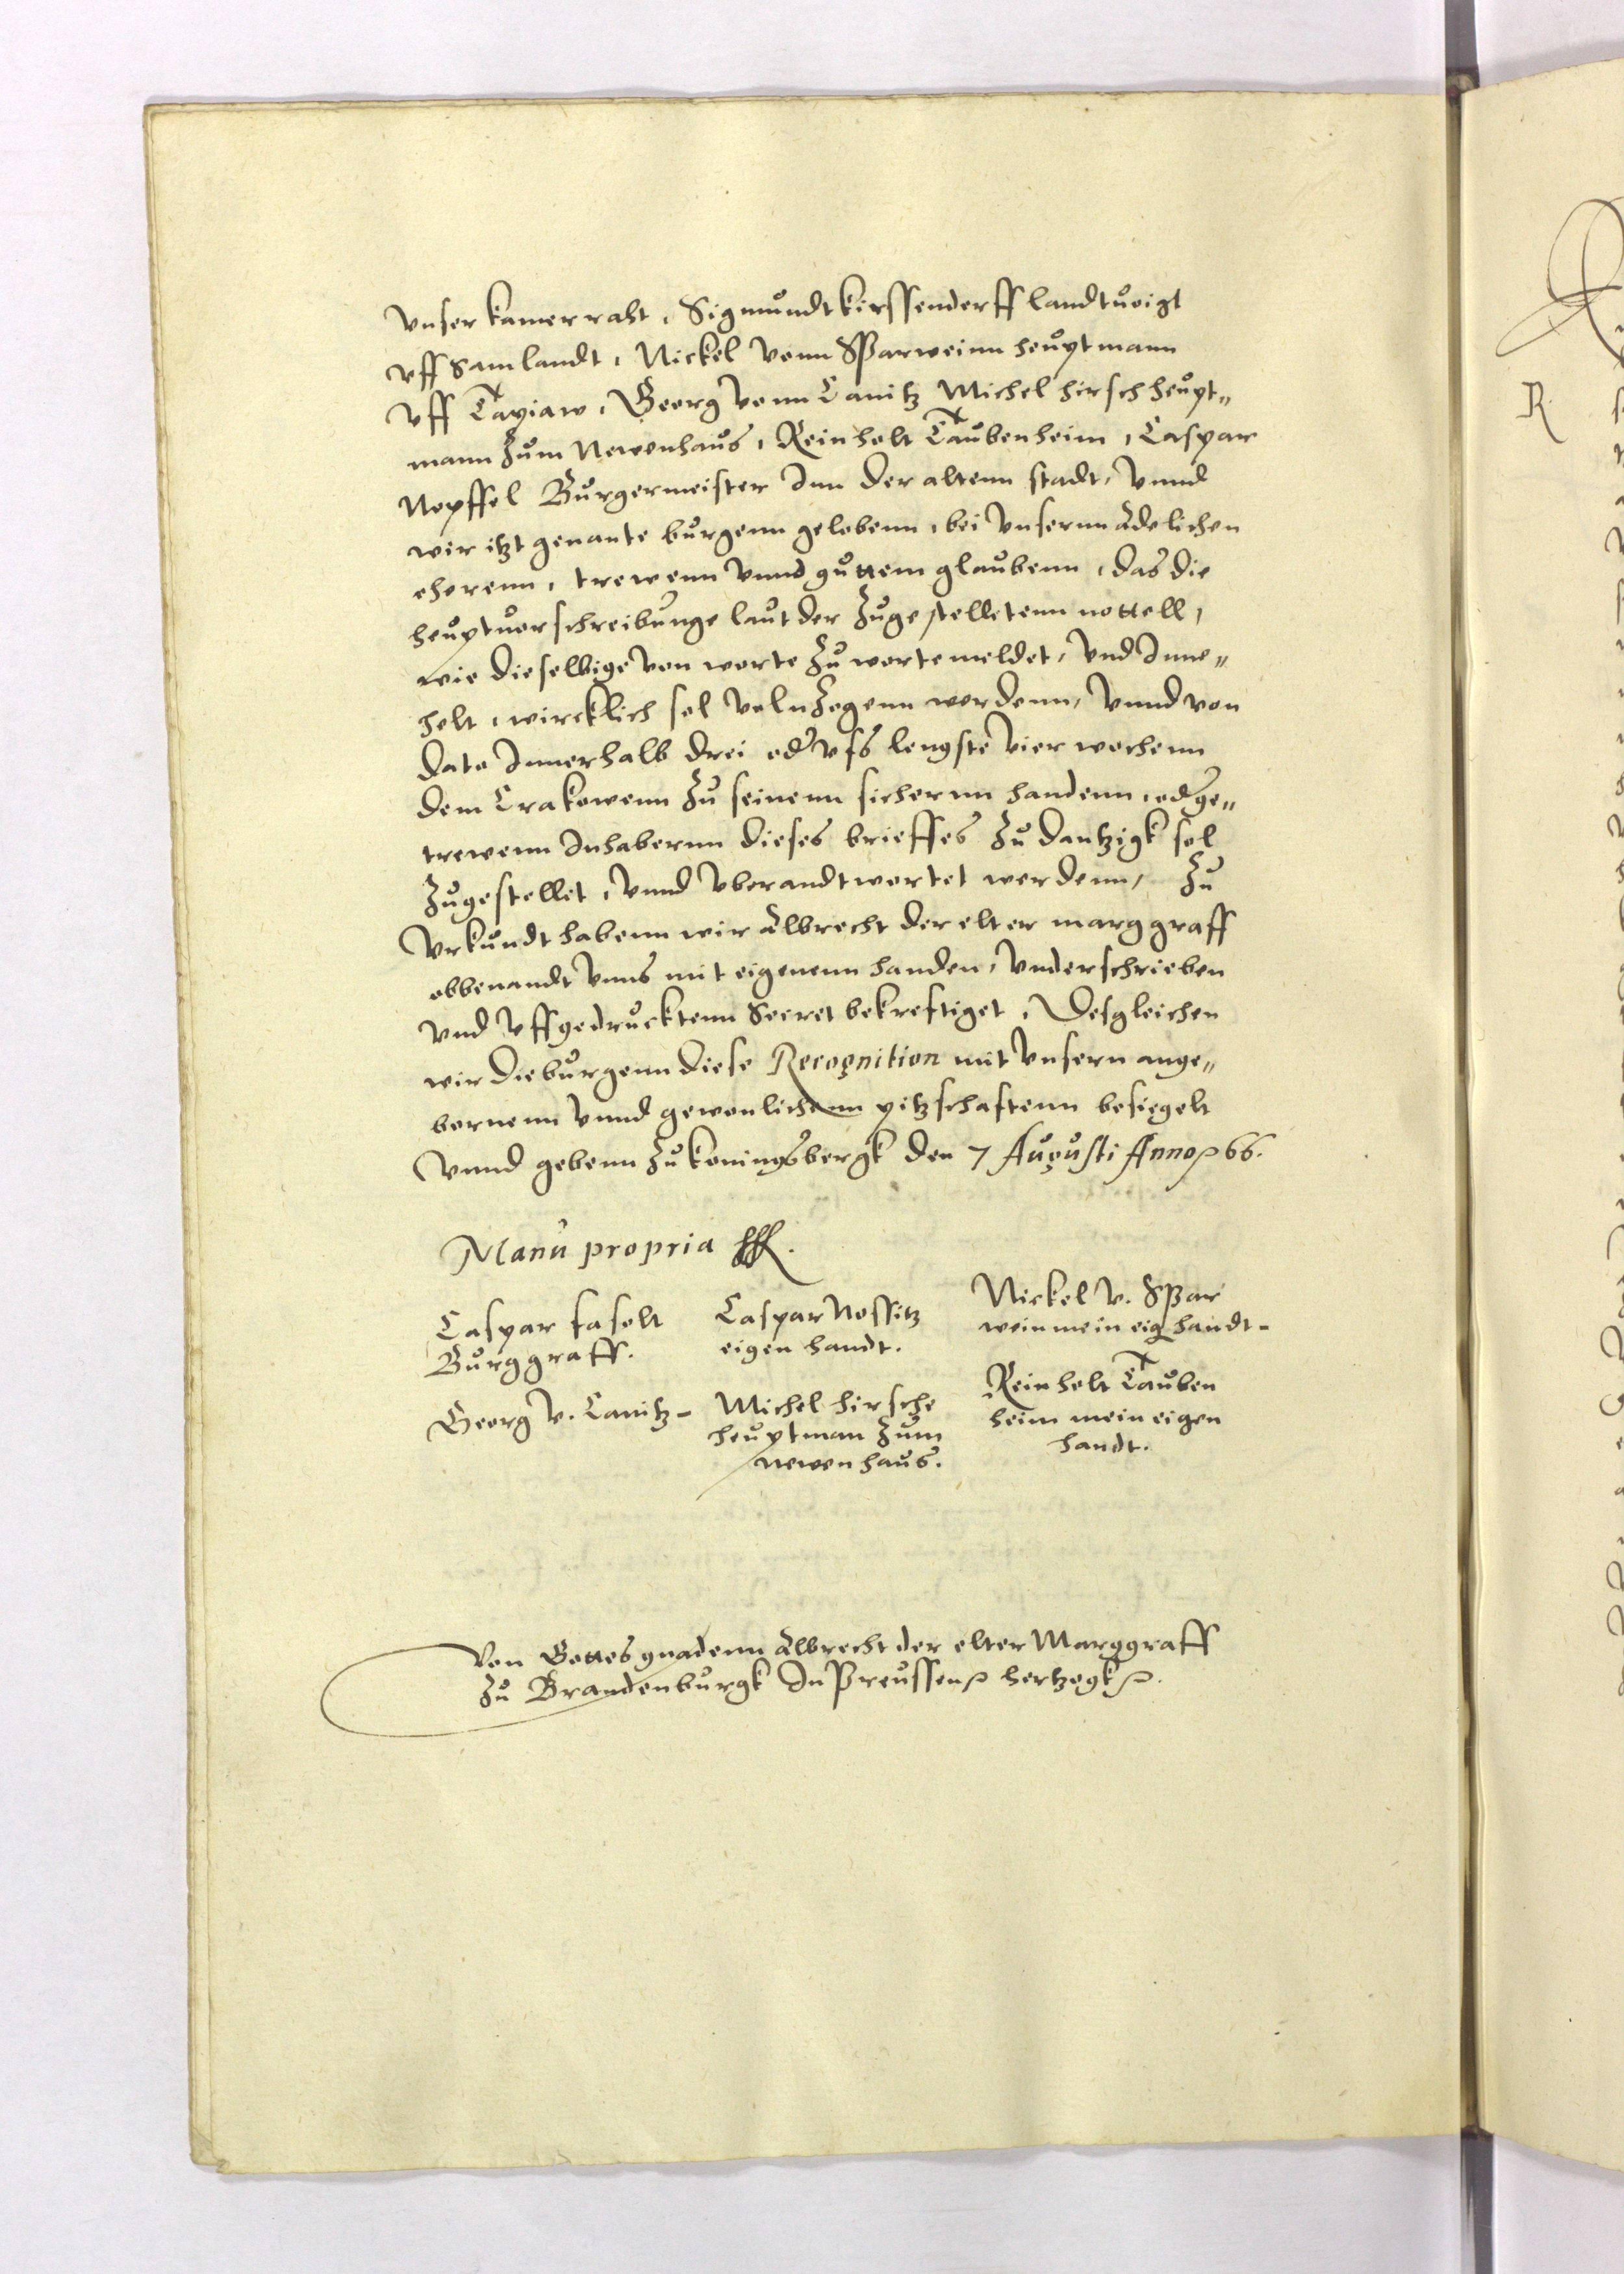 vnser kamerraht, Sigmundt kirssenderff landtuoigt
vff Samlandt, Nickel vonn Sparweinn heuptmann
vff Tapiaw, Georg vonn Canitz Michel hirsch heupt„
mann zum Newenhaus, Reinholt Taubenheim, Caspar
Nopffel Burgermeister Inn der altenn stadt, vnnd
wir itzt genante burgenn gelobenn, bei vnsernn adelichen
eherenn, trewenn vnnd guttem glaubenn, das die
heuptuorschreibunge laut der zugestelletenn nottell,
wie dieselbige von worte zu worte meldet, vnd Inne„
helt, wircklich sol volnzogenn werdenn, vnnd von
dato Innerhalb drei od vfs lengste vier wochenn
dem Crakowenn zu seinenn sichernn handenn, od ge„
trewenn Inhabernn dieses brieffes zu dantzigk sol
zugestellet, vnnd vberandtwortet werdenn, Zu
Vrkundt habenn wir Albrecht der elter marggraff
obbenandt vnns mit eigenenn handen, vnderschrieben
vnd vffgedrucktenn Secret bekreftiget, Desgleichen
wir die burgenn diese Recognition mit vnsern ange„
bornenn vnnd gewonlichenn pitzschaftenn besiegelt
vnnd gebenn zu konningsbergk den 7 Augusti Anno 66.
Manu propria
Caspar fasolt
Burggraff.
Caspar Nossitz
eigen handt.
Nickel v. Spar
wein mein eig handt-
Georg v. Canitz-
Michel hirsche
heuptman zum
newenhaus.
Reinholt Tauben
heim mein eigen
handt.
Von Gottes gnadenn Albrecht der elter Marggraff
zu Brandenburgk In Preussen hertzogk
R